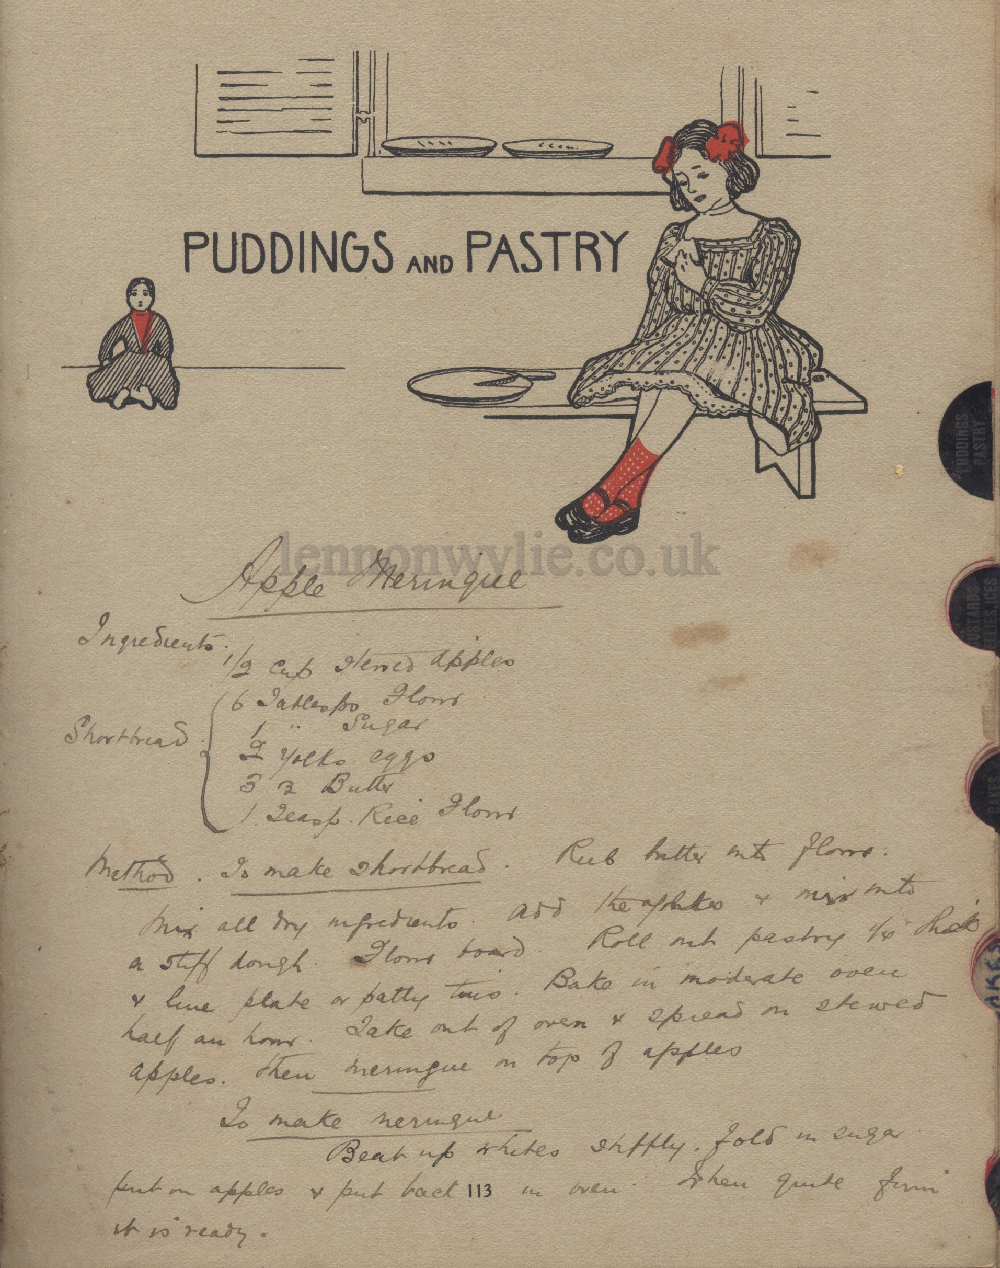 PUDDINGS AND PASTRY
PUDDINGS
PASTRY
lennonwylie.co.uk
Apple Meringue
Ingredients.
1/2 cup stewed apples
Shortbread
6 Tablesps Flour
1 " Sugar
2 yolks eggs
3 ℥ Butter
1 Teasp. Rice Flour
Method. To make shortbread. Rub butter into flour.
Mix all dry ingredients. Add the & mix into
a stiff dough. Flour board. Roll out pastry 1/4" thick
& line plate or patty tins. Bake in moderate oven
half an hour. Take out of oven & spread on stewed
apples. Then meringue on top of apples
To make meringue
Beat up whites stiffly. Fold in sugar
put on apples & put back in oven. When quite firm
it is ready.
113